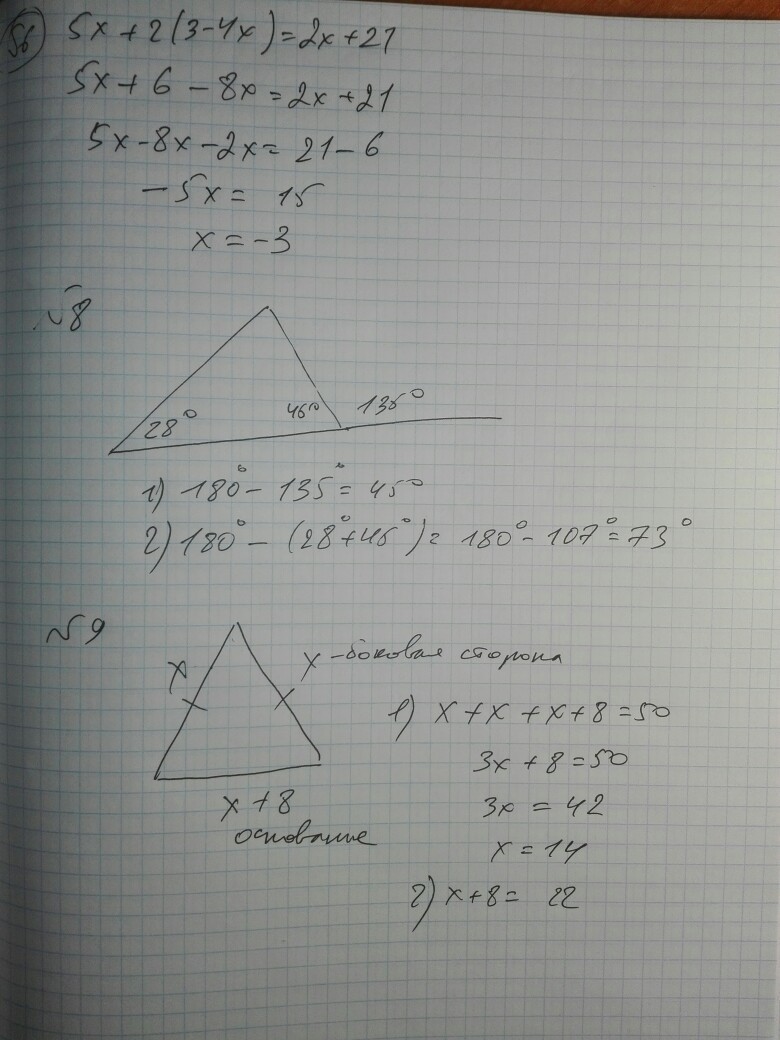 5б) 5x + 2(3-4x) = 2x + 21
5x + 6 - 8x = 2x + 21
5x - 8x - 2x = 21 - 6
-5x = 15
x = -3
№8
28° 45° 135°
1) 180° - 135° = 45°
2) 180° - (28° + 45°) = 180° - 107° = 73°
№9
x x - боковая сторона
1) x + x + x + 8 = 50
3x + 8 = 50
x + 8 3x = 42
основание x = 14
2) x + 8 = 22